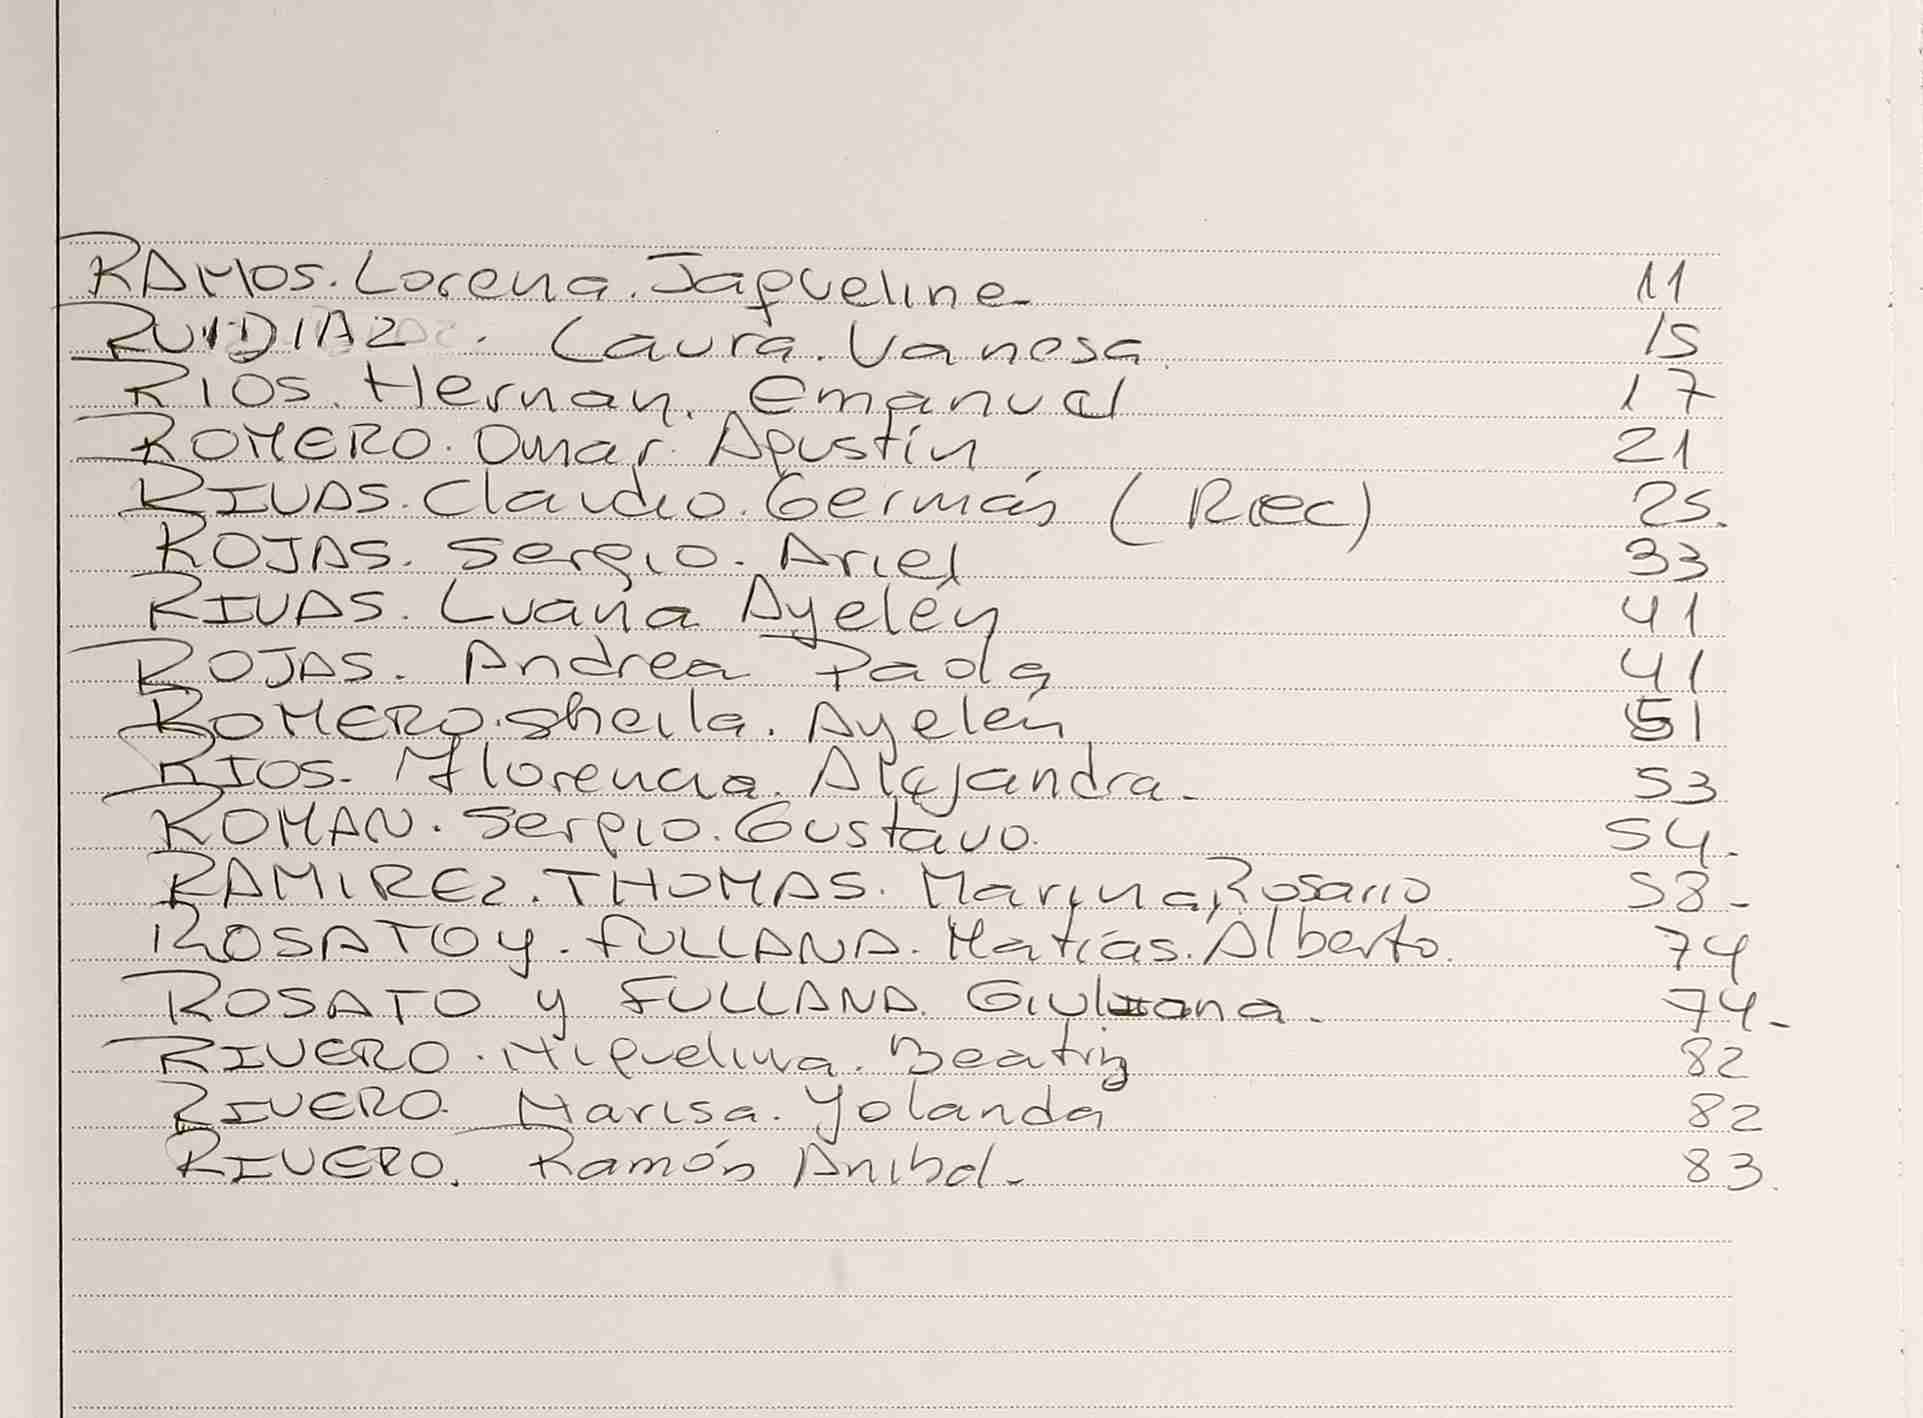 RAMOS. Lorena. Jaqueline- 11
RUIDIAZ. Laura. Vanesa. 15
RIOS. Hernan. Emanuel 17
ROMERO. Omar. Agustín 21
RIVAS. Claudio. Germán (Rec) 25.
ROJAS. Sergio. Ariel 33
RIVAS. Luana Ayelén 41
ROJAS. Andrea Paola 41
ROMERO. Sheila. Ayelén 51
RIOS- Florencia. Alejandra- 53
ROMAN. Sergio. Gustavo. 54-
RAMIREZ. THOMAS. Marina, Rosario 58-
ROSATO y. FULLANA. Matías. Alberto. 74
ROSATO y FULLANA. Giuliana- 74-
RIVERO. Miquelina. Beatriz 82
RIVERO. Marisa. Yolanda 82
RIVERO. Ramón Anibal- 83.